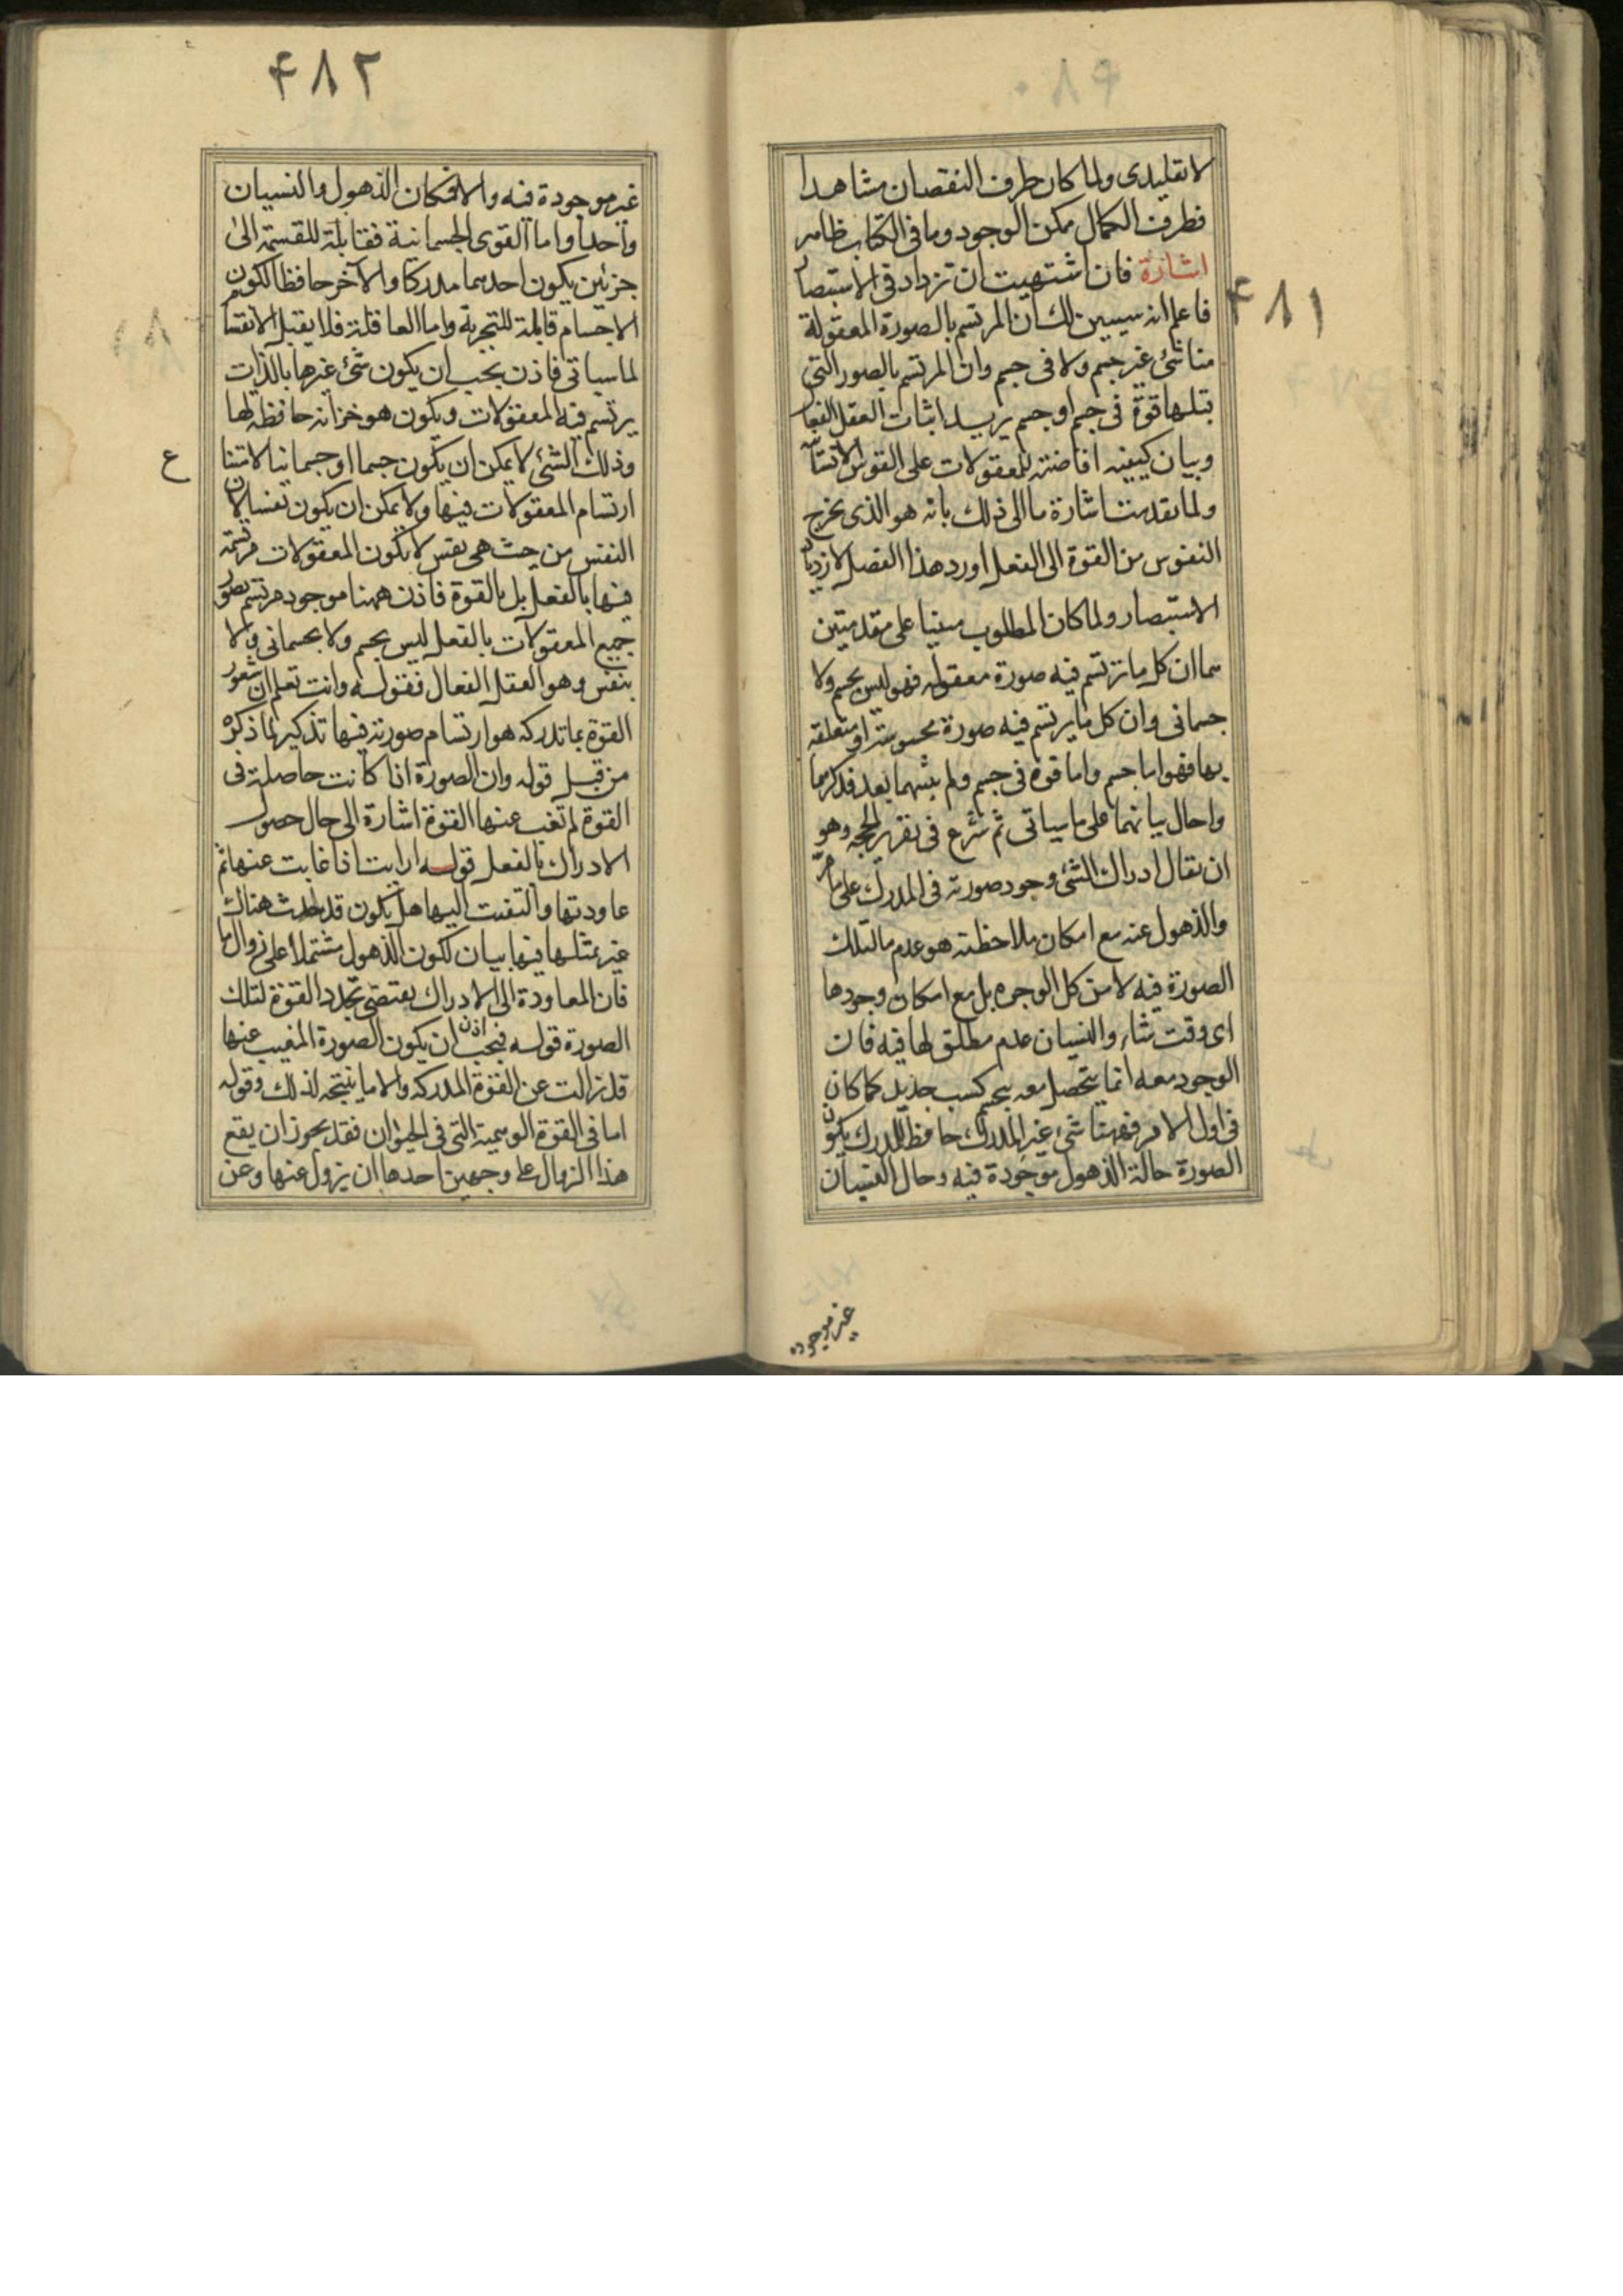 ۴۸۱
لا تقليدى ولما كان طرف النقصان مشاهدا
فطرف الكمال ممكن الوجود وما فى الكتاب ظاهر
اشارة فان اشتهيت ان تزداد فى الاستبصار
فاعلم انه سيبين لك ان المرتسم بالصورة المعقولة
منا شئ غير جسم ولا فى جسم وان المرتسم بالصور التى
قبلها قوة فى جسم او جسم يريد اثبات العقل الفعال
وبيان كيفية افاضته للمعقولات على النفوس الانسانية
ولما تقدمت اشارة ما الى ذلك بانه هو الذى يخرج
النفوس من القوة الى الفعل اورد هذا الفصل لازدياد
الاستبصار ولما كان المطلوب مبنيا على مقدمتين
هما ان كل ما ترتسم فيه صورة معقولة فهو ليس بجسم ولا
جسمانى وان كل ما يرتسم فيه صورة محسوسة او متعلقة
بها فهو اما جسم واما قوة فى جسم ولم يثبتهما بعد فذكرهما
واحال بيانهما على ما سياتى ثم شرع فى تقرير الحجه وهو
ان يقال ادراك الشئ وجود صورته فى المدرك على ما مر
والذهول عنه مع امكان ملاحظته هو عدم ما لتلك
الصورة فيه لا من كل الوجوه بل مع امكان وجودها
اى وقت شاء والنسيان عدم مطلق لها فيه فان
الوجود معه انما يتحصل بتجشم كسب جديد كما كان
فى اول الامر فههنا شئ غير المدرك حافظ للمدرك يكون
الصورة حالة الذهول موجودة فيه وحال النسيان
غير موجوده
۴۸۲
غير موجودة فيه والا فكان الذهول والنسيان
واحدا واما القوى الجسمانية فقابلة للقسمة الى
جزئين يكون احدهما مدركا والآخر حافظا لكون
الاجسام قابلة للتجزية واما العاقلة فلا يقبل الانقسام
لما سياتى فاذن يجب ان يكون شئ غيرها بالذات
يرتسم فيه المعقولات ويكون هو خزانه حافظة لها
وذلك الشئ لا يمكن ان يكون جسما او جسمانيا لامتناع
ارتسام المعقولات فيها ولا يمكن ان يكون نفسا لان
النفس من حيث هى نفس لا يكون المعقولات مرتسمة
فيها بالفعل بل بالقوة فاذن ههنا موجود مرتسم بصور
جميع المعقولات بالفعل ليس بجسم ولا بجسمانى ولا
بنفس وهو العقل الفعال فقوله وانت تعلم ان شعور
القوة بما تدركه هو ارتسام صورته فيها تذكير لما ذكره
من قبل قوله وان الصورة اذا كانت حاصلة فى
القوة لم تغب عنها القوة اشارة الى حال حصول
الادراك بالفعل قوله ارايت اذا غابت عنها ثم
عاودتها والتفتت اليها هل يكون قد حدث هناك
غير تمثلها فيها بيان لكون الذهول مشتملا على زوال ما
فان المعاودة الى الادراك يقتضى تجدد القوة لتلك
الصورة قوله فيجب اذن ان يكون الصورة المغيب عنها
قد زالت عن القوة المدركه والا ما نتيجة لذلك وقوله
اما فى القوة الوهمية التى فى الحيوان فقد يجوز ان يقع
هذا الزوال على وجهين احدها ان يزول عنها وعن
ع